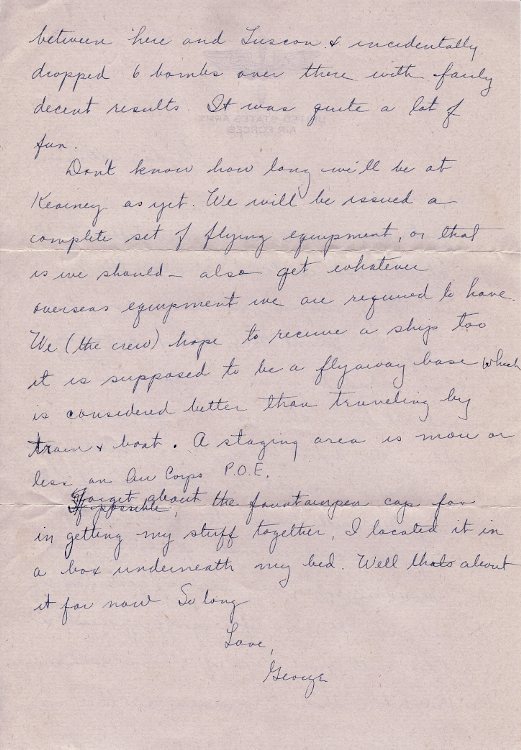 between here and Tuscon & incidentally
dropped 6 bombs over there with fairly
decent results. It was quite a lot of
fun.
Don't know how long we'll be at
Kearney as yet. We will be issued a
complete set of flying equipment, or that
is we should - also get whatever
overseas equipment we are required to have.
We (the crew) hope to receive a ship too
it is supposed to be a flyaway base which
is considered better than traveling by
train & boat. A staging area is more or
less an Air Corps P.O.E.
Forget about the fountainpen cap for
in getting my stuff together, I located it in
a box underneath my bed. Well thats about
it for now So long
Love,
George